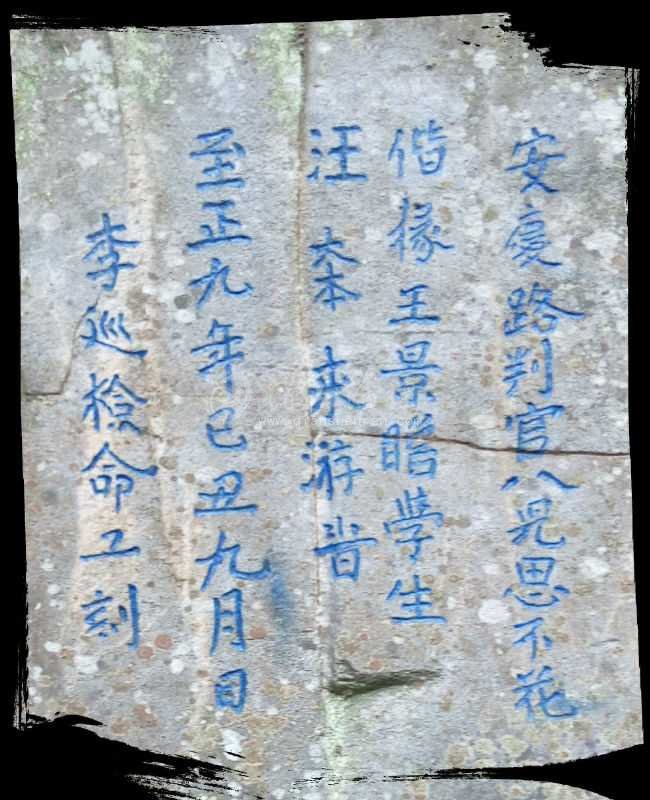 安慶路判官八児思不花
偕掾王景瞻學生
汪來游旹
至正九年己丑九月日
李巡檢命工刻